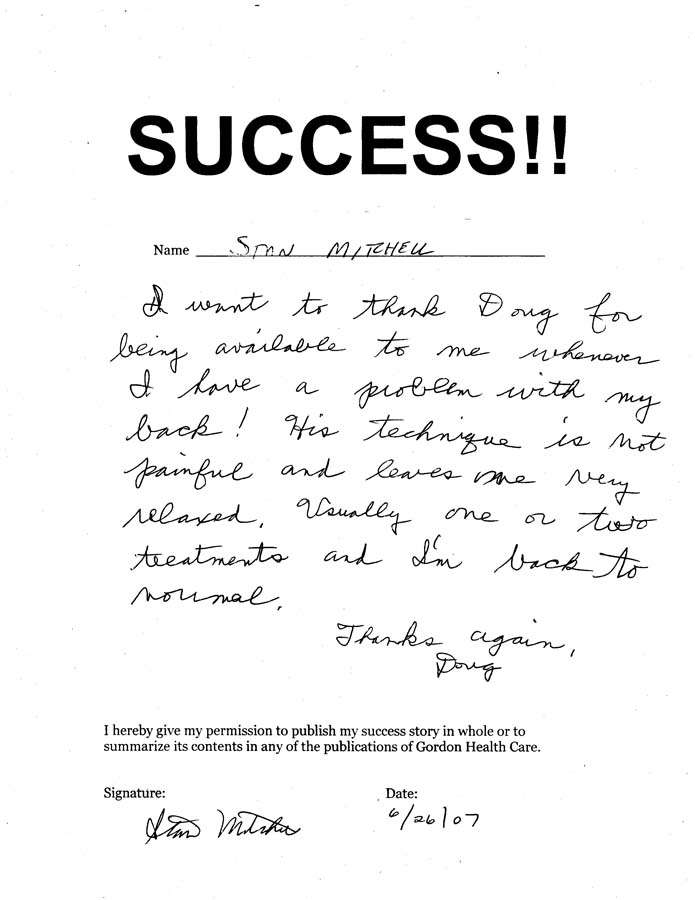 SUCCESS!!
Name STAN MITCHELL
I want to thank Doug for
being available to me whenever
I have a problem with my
back! His technique is not
painful and leaves me very
relaxed. Usually one or two
treatments and I'm back to
normal.
Thanks again,
Doug
I hereby give my permission to publish my success story in whole or to
summarize its contents in any of the publications of Gordon Health Care.
Signature: Date:
Stan Mitchell 6/26/07